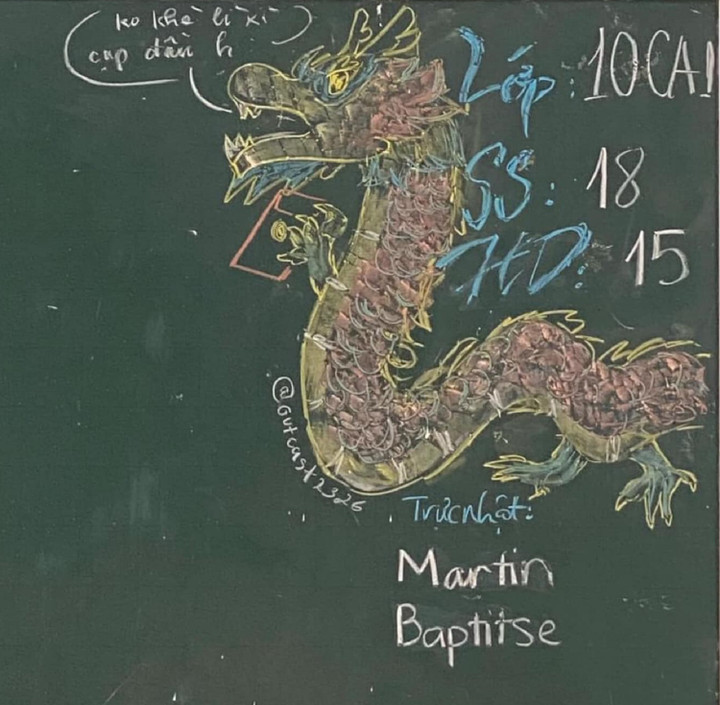 ko khẻ lì xì
cạp dầu h
Lớp: 10CA1
SS: 18
HD: 15
@outcast2326
Trực nhật:
Martin
Baptitse